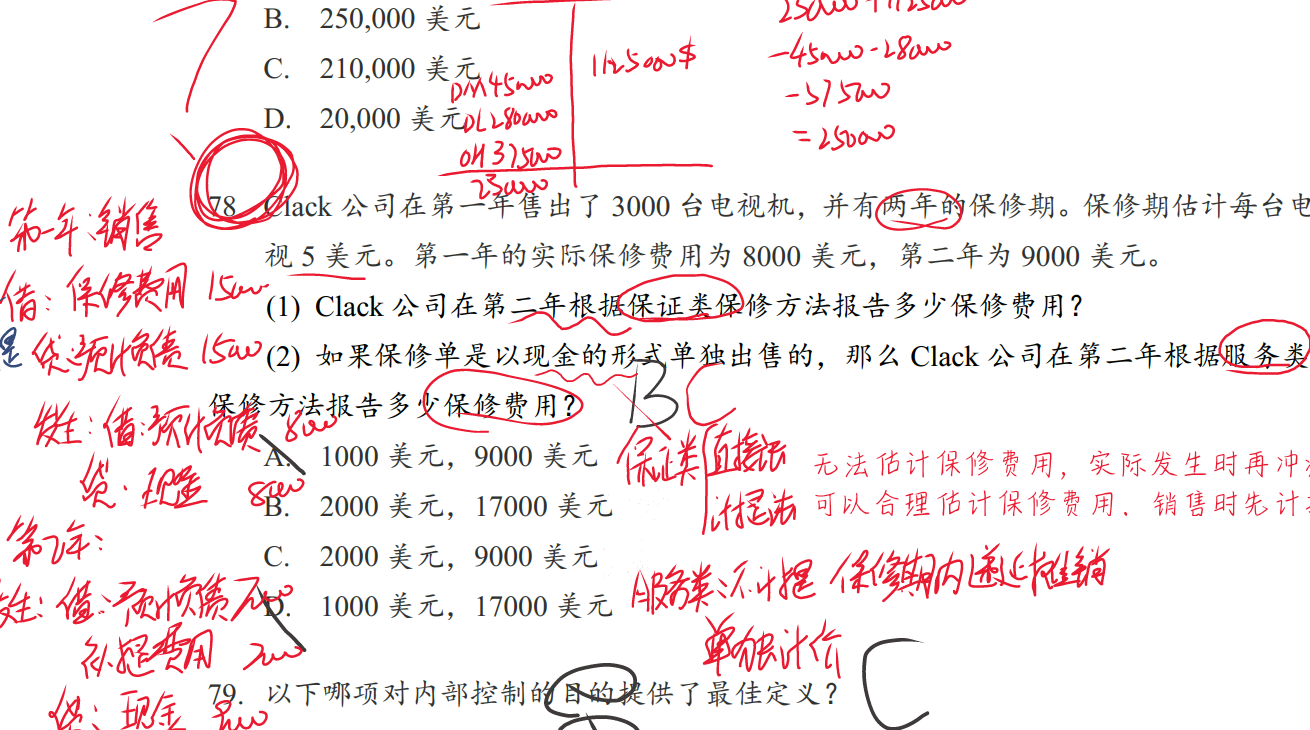 B. 250,000 美元
C. 210,000 美元
D. 20,000 美元
DM 45000
DL 280000
OH 375000
25000
1125000$
-45000-28000
-375000
=25000
78. Clack 公司在第一年售出了 3000 台电视机，并有两年的保修期。保修期估计每台电
视 5 美元。第一年的实际保修费用为 8000 美元，第二年为 9000 美元。
(1) Clack 公司在第二年根据保证类保修方法报告多少保修费用？
(2) 如果保修单是以现金的形式单独出售的，那么 Clack 公司在第二年根据服务类
保修方法报告多少保修费用？
B C
A. 1000 美元，9000 美元
B. 2000 美元，17000 美元
C. 2000 美元，9000 美元
D. 1000 美元，17000 美元
第一年：销售
借：保修费用 15000
贷：预计负债 15000
发生：借：预计负债 8000
贷：现金 8000
第2年：
发生：借：预计负债 7000
补提费用 2000
贷：现金
保证类 直接法 无法估计保修费用，实际发生时再冲
计提法 可以合理估计保修费用，销售时先计
服务类：不计提 保修期内递延摊销
单独计价
79. 以下哪项对内部控制的目的提供了最佳定义？
C